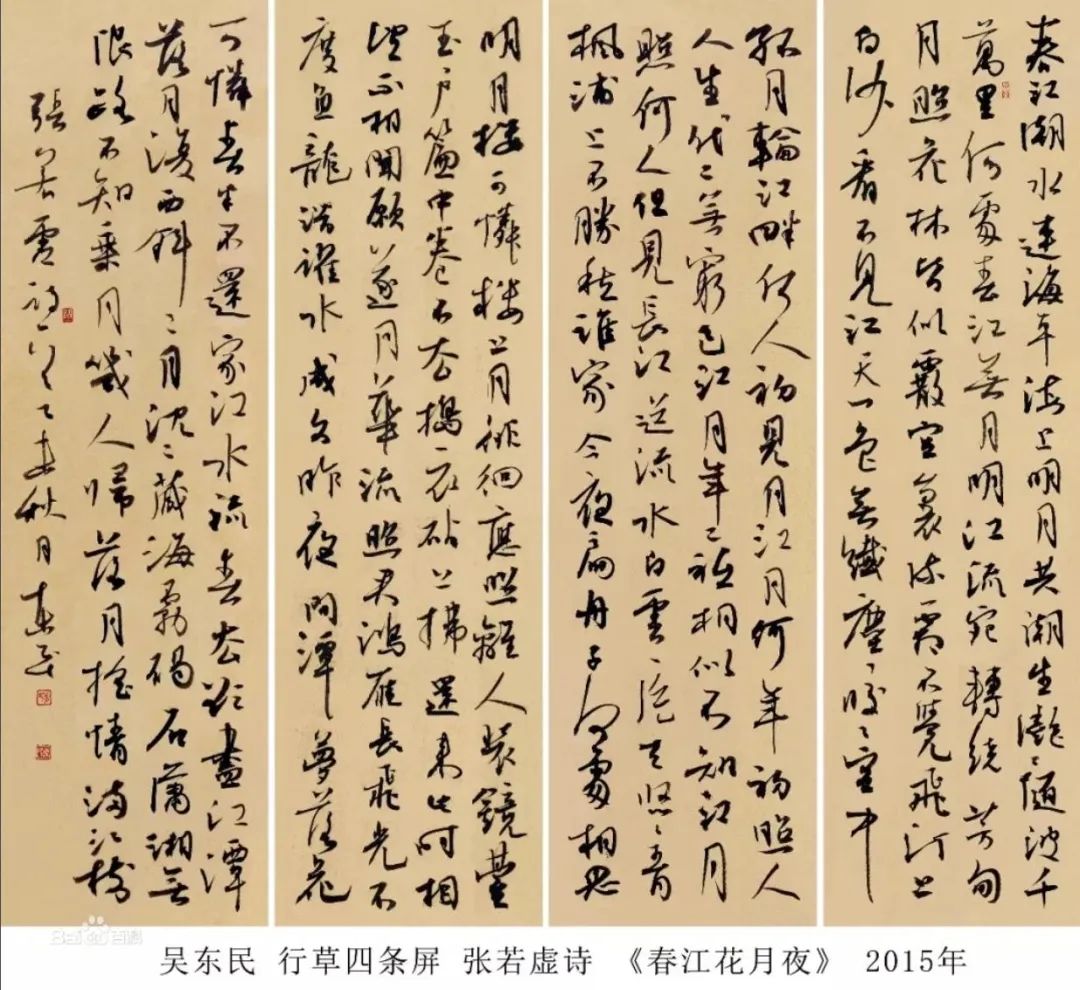 春江潮水連海平海上明月共潮生灩々隨波千
萬里何處春江無月明江流宛轉繞芳甸
月照花林皆似霰空裏流霜不覺飛汀上
白沙看不見江天一色無纖塵皎々空中
孤月輪江畔何人初見月江月何年初照人
人生代々無窮已江月年々祇相似不知江月
照何人但見長江送流水白雲一片去悠々青
楓浦上不勝愁誰家今夜扁舟子何處相思
明月樓可憐樓上月徘徊應照離人裝鏡臺
玉戶簾中卷不去搗衣砧上拂還來此時相
望不相聞願逐月華流照君鴻雁長飛光不
度魚龍潛躍水成文昨夜閒潭夢落花
可憐春半不還家江水流春去欲盡江潭
落月復西斜々月沈々藏海霧碣石瀟湘無
限路不知乘月幾人歸落月搖情滿江樹
張若虛詩一首乙未秋月東民
Baidu百科
吴东民 行草四条屏 张若虚诗 《春江花月夜》 2015年